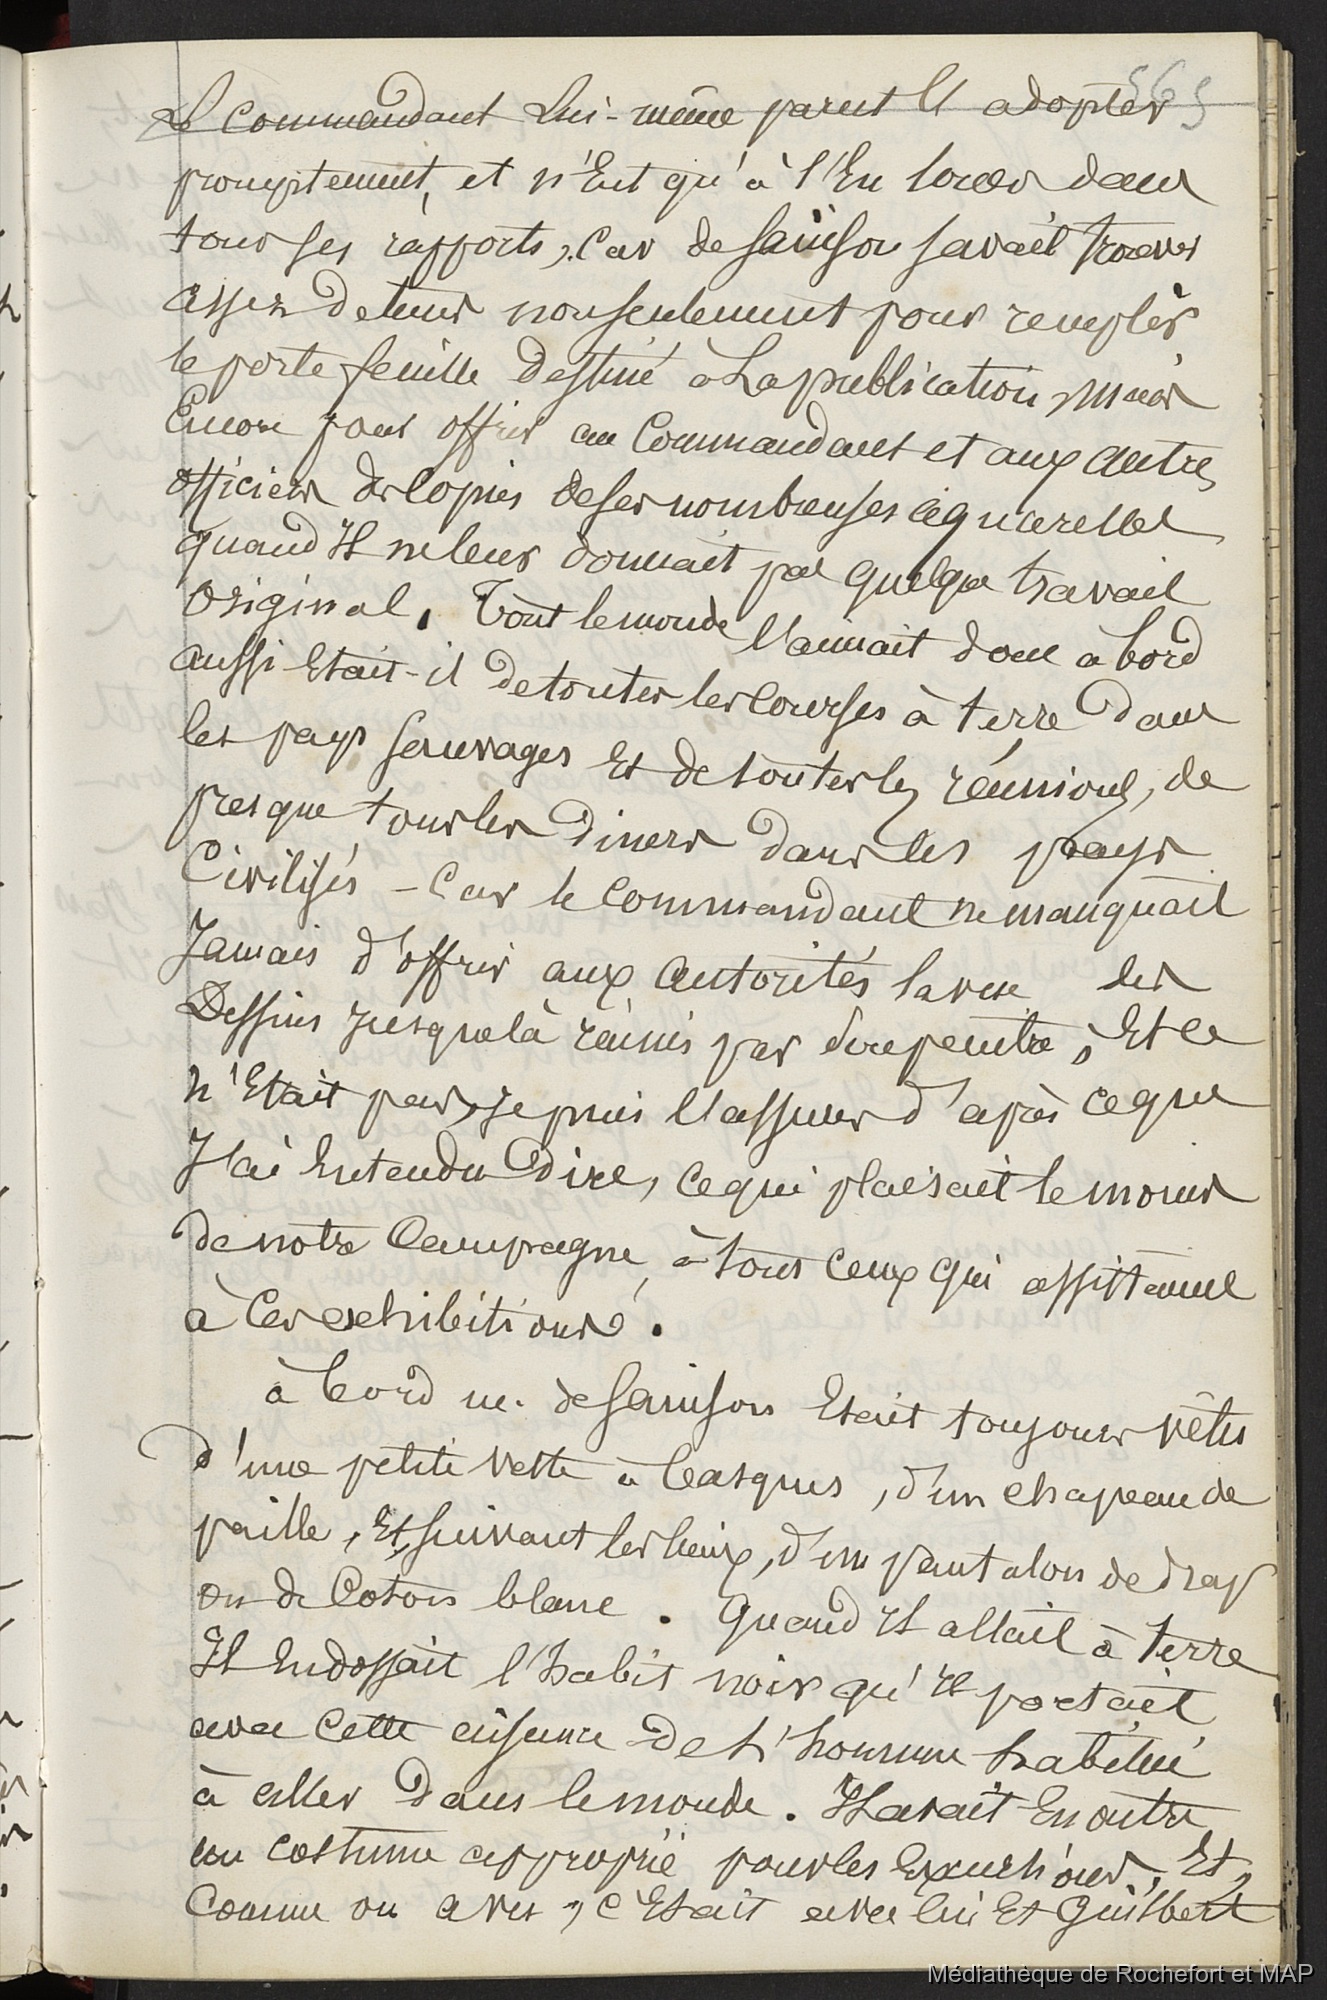 565
Le commandant lui-même parut l'adopter
promptement, et n'Eut qu'à s'En louer dans
tous ses rapports, car de Sainson savait trouver
assez de tems nonseulement pour remplir
le portefeuille destiné à la publication, mais
Encore pour offrir au Commandant et aux autres
officiers des Copies de ses nombreuses aquarelles
quand Il ne leur donnait pas quelque travail
original. Tout le monde l'aimait donc à bord
aussi Etait-il de toutes les courses à terre dans
les pays sauvages Et de toutes les réunions, de
presque tous les diners dans les pays
Civilisés - Car le commandant ne manquait
Jamais d'offrir aux autorités la vue des
Dessins jusque là réunis par le peintre, Et ce
n'Etait pas, je puis l'assurer d'après ce que
J'ai Entendu dire, ce qui plaisait le moins
de notre Campagne, à tous ceux qui assistaient
à ces exhibitions.
à bord m. de Sainson Etait toujours vêtu
d'une petite veste à basques, d'un chapeau de
paille, Et, suivant les lieux, d'un pantalon de drap
ou de Coton blanc. Quand Il allait à terre
Il Endossait l'habit noir qu'Il portait
avec cette aisance de l'homme habitué
à aller dans le monde. Il avait En outre
un costume approprié pour les Excursions, Et,
Comme on a vu, c'Etait avec lui Et Guilbert
Médiathèque de Rochefort et MAP